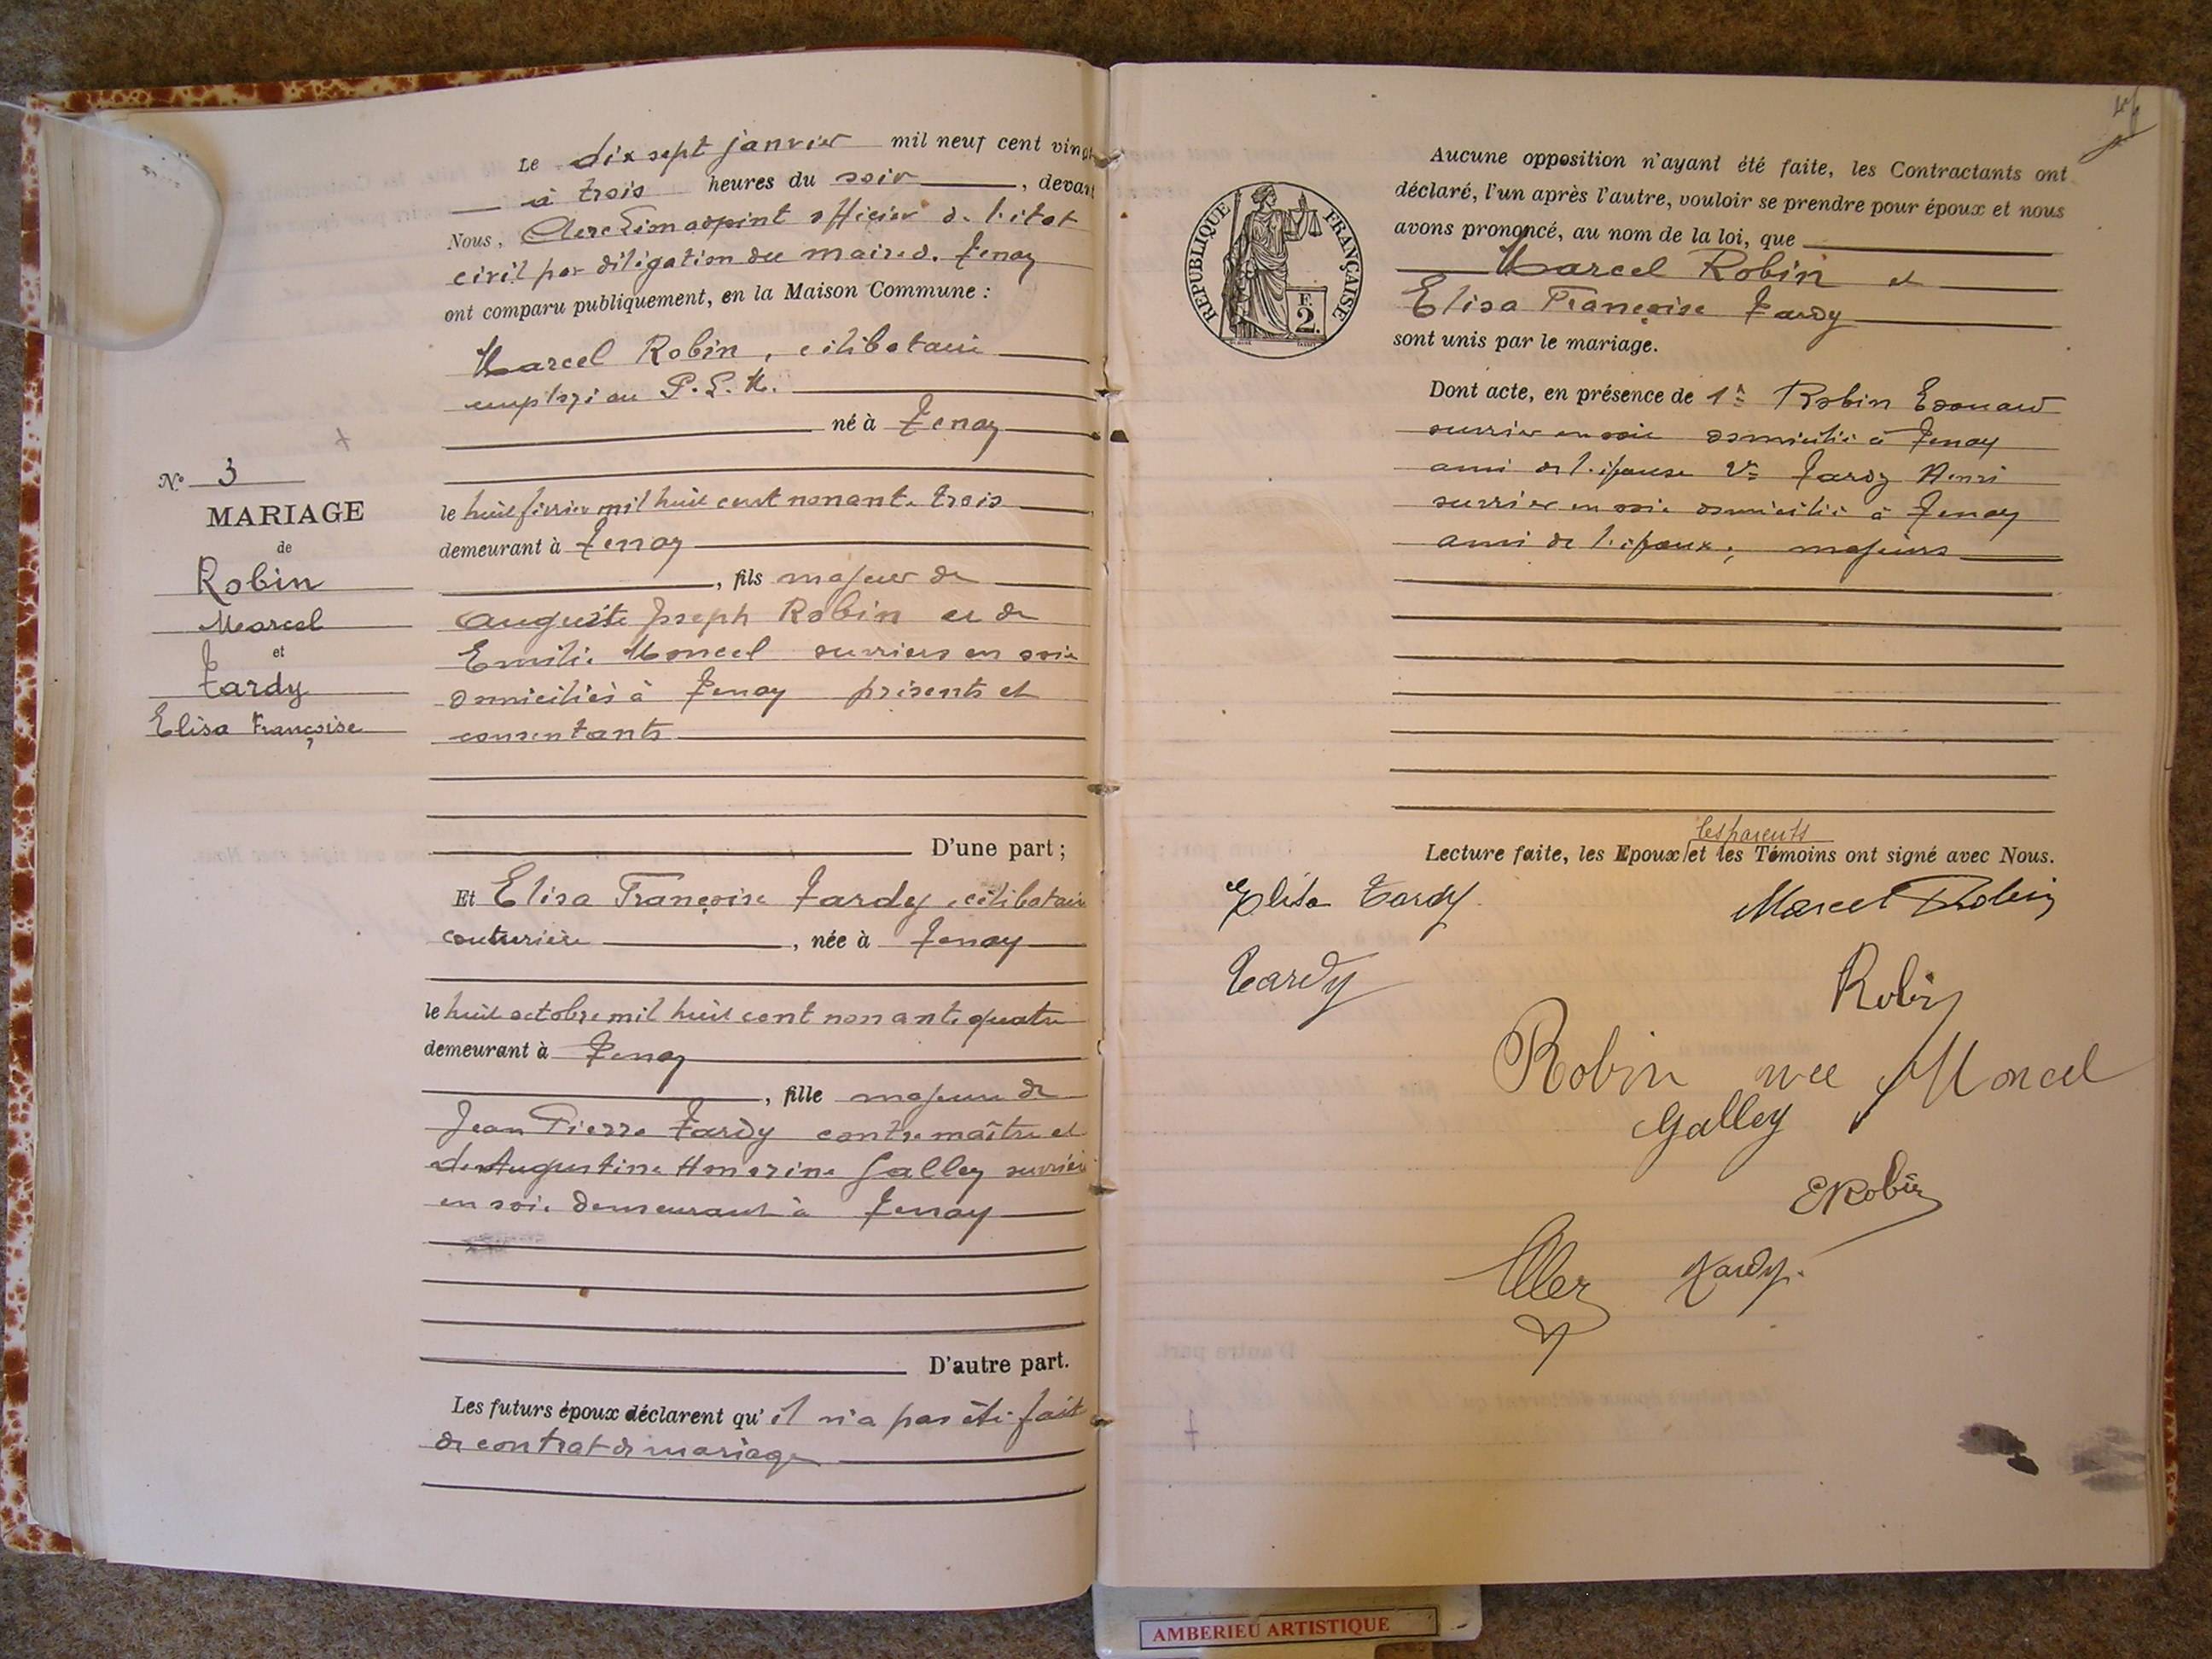 Le dix sept janvier mil neuf cent vingt
à trois heures du soir, devant
Nous, adjoint officier de l'état
civil par délégation du maire de Tenay
ont comparu publiquement, en la Maison Commune :
Marcel Robin, célibataire
employé au P.L.M.
né à Tenay
le huit février mil huit cent nonante trois
demeurant à Tenay
, fils majeur de
Auguste Joseph Robin et de
Emilie Moncel ouvriers en soie
domiciliés à Tenay présents et
consentants
D'une part ;
Et Elisa Françoise Tardy, célibataire
couturière, née à Tenay
le huit octobre mil huit cent nonante quatre
demeurant à Tenay
, fille majeure de
Jean Pierre Tardy contremaître et
de Augustine Honorine Galley ouvrière
en soie demeurant à Tenay
D'autre part.
Les futurs époux déclarent qu'il n'a pas été fait
de contrat de mariage
No 3
MARIAGE
de
Robin
Marcel
et
Tardy
Elisa Françoise
REPUBLIQUE FRANÇAISE
F.
2.
Aucune opposition n'ayant été faite, les Contractants ont
déclaré, l'un après l'autre, vouloir se prendre pour époux et nous
avons prononcé, au nom de la loi, que
Marcel Robin et
Elisa Françoise Tardy
sont unis par le mariage.
Dont acte, en présence de 1° Robin Edouard
ouvrier en soie domicilié à Tenay
ami de l'épouse 2° Tardy Henri
ouvrier en soie domicilié à Tenay
ami de l'époux; majeurs
les parents
Lecture faite, les Epoux et les Témoins ont signé avec Nous.
Elisa Tardy
Marcel Robin
Tardy
Robin
Robin née Moncel
Galley
E Robin
Tardy.
AMBERIEU ARTISTIQUE